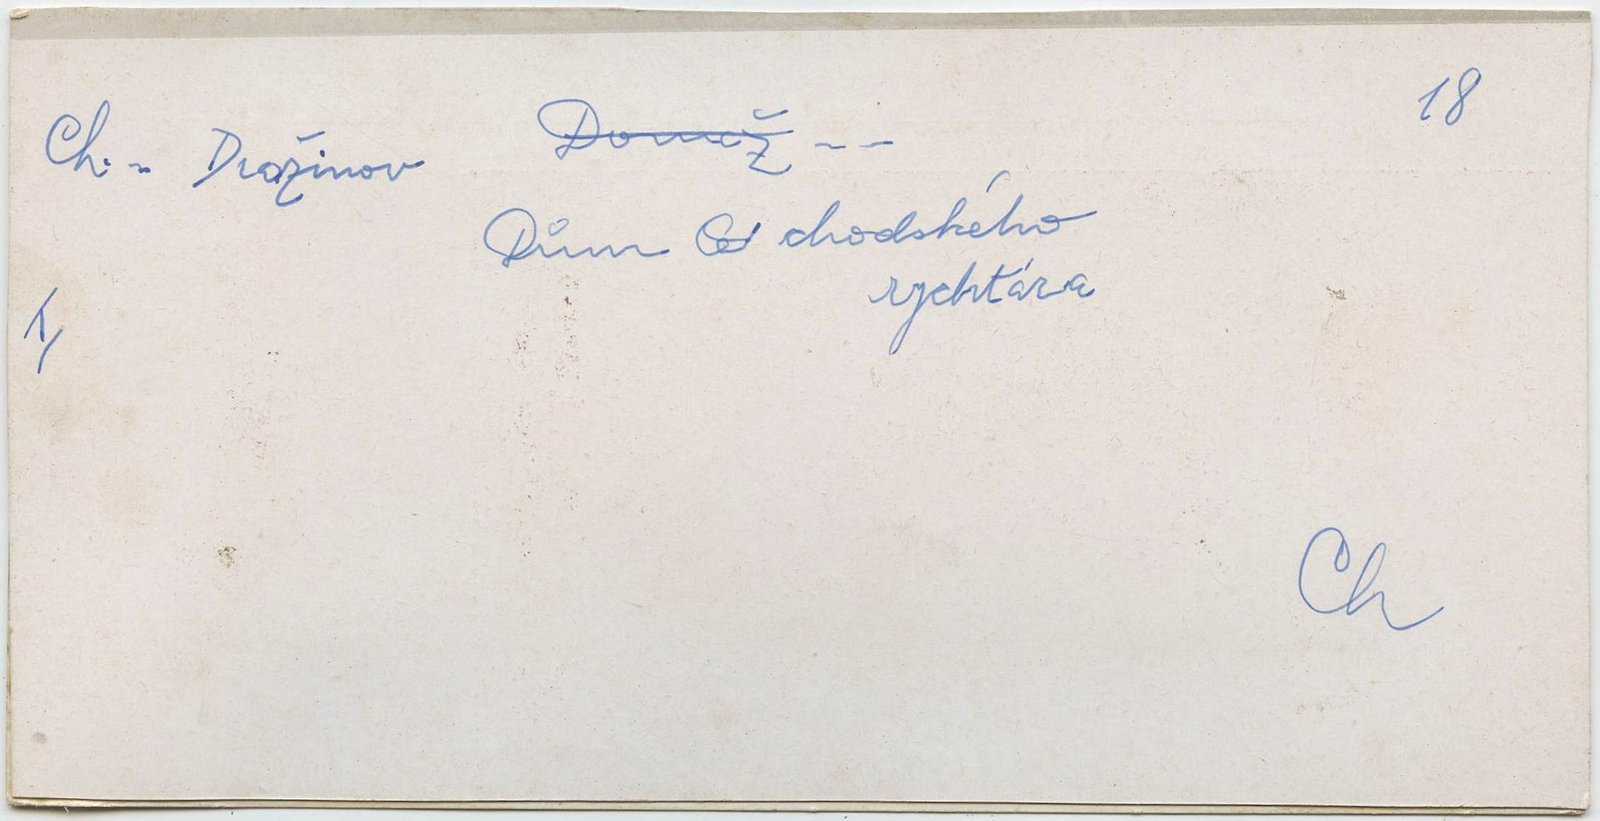 18
Ch. - Dražinov Domaž --
Dům chodského
rychtára
1,
Ch